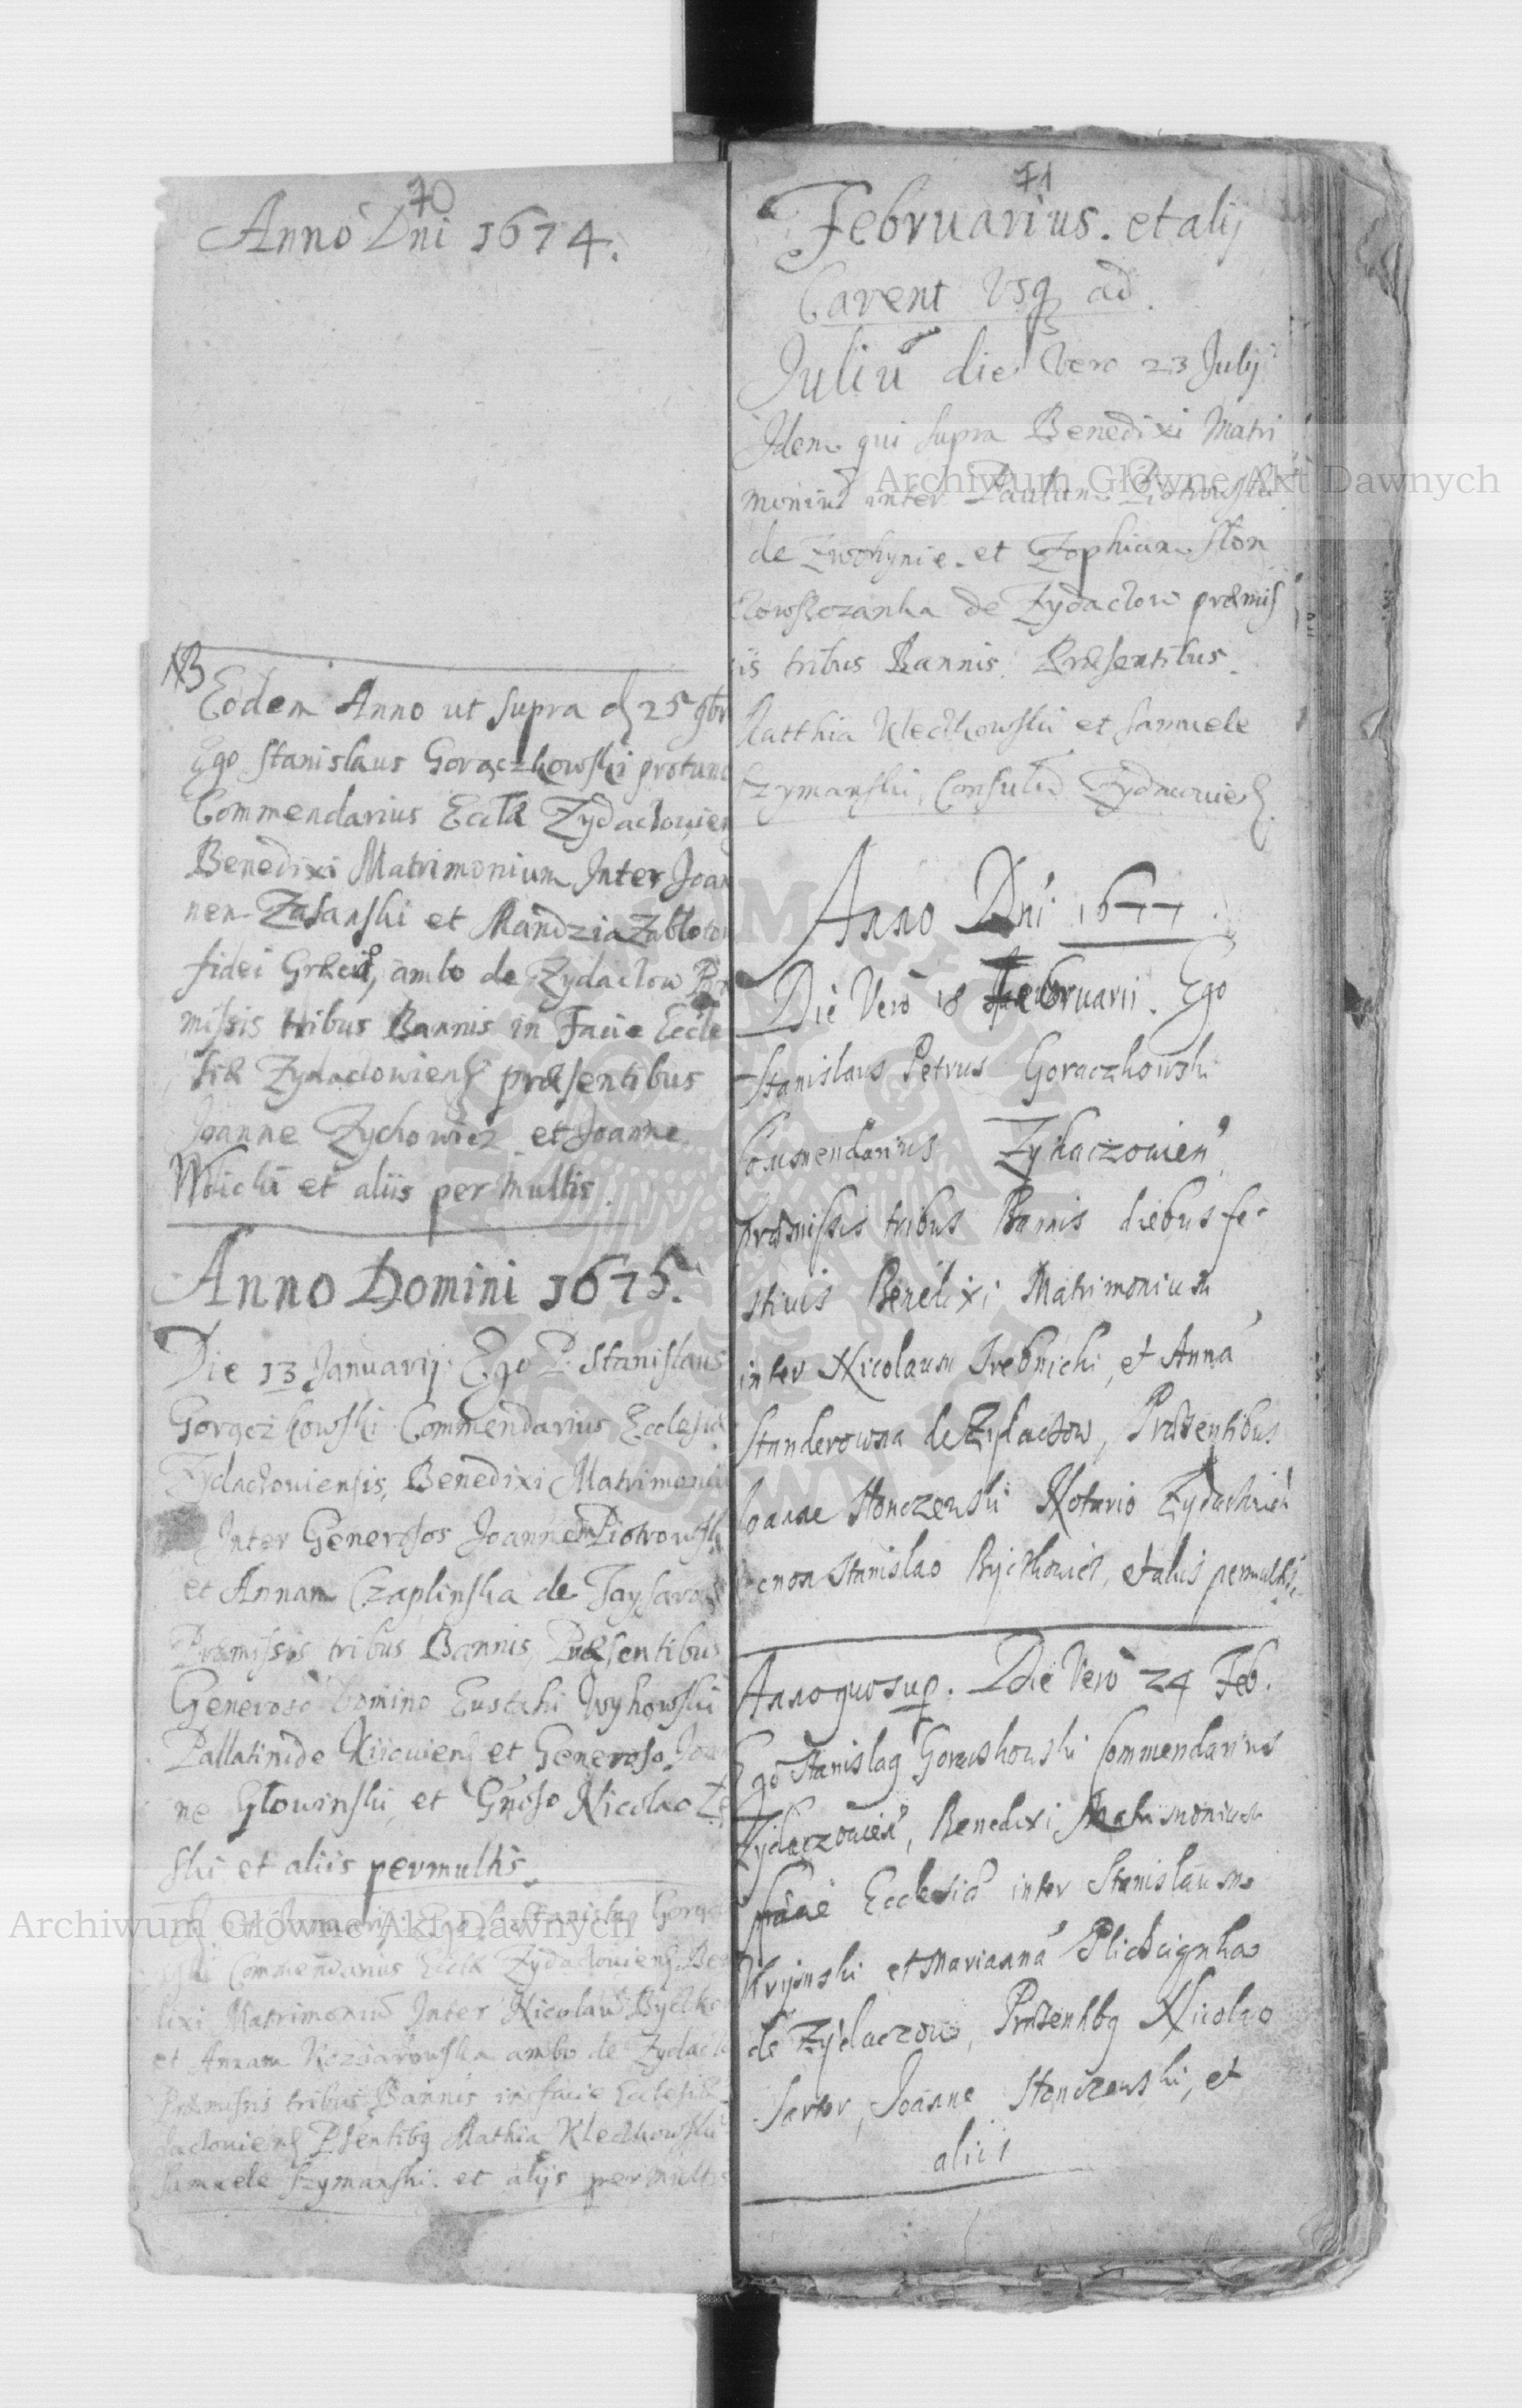 70
Anno Dni 1674.
NB
Eodem Anno ut supra d 25 9br
Ego Stanislaus Gorączkowski protunc
Commendarius Eccłæ Zydacłowien
Benedixi Matrimonium Inter Joan
nem Zasanski et Mandzia Zabłoto
fidei Græci, ambo de Zydacłow Præ
missis tribus Bannis in Facie Eccle
siæ Zydacłowiens præsentibus
Joanne Zychowicz et Joanne
Wolicki et aliis per multis.
Anno Domini 1675.
Die 13 Januarij Ego P. Stanislaus
Gorączkowski Commendarius Ecclesiæ
Zydacłoviensis, Benedixi Matrimoniu
Inter Generosos Joannem Piotrowsk
et Annam Czaplinska de
Præmissis tribus Bannis, Præsentibus
Generoso Domino Eustachi Wyhowski
Pallatinide Kiiouiens et Generoso Joan
ne Głowinski, et Gnoso Nicolao
ski et aliis permultis.
Januarij Ego Stanislaus Gorącz
Commendarius Eccłæ Zydacłouiens Ben
dixi Matrimoniu Inter Nicolau Byczko
et Annam Koziarowska ambo de Zydacło
Præmissis tribus Bannis in facie Ecclesiæ
dacłouiens Psentibq Mathia Kleczkowski
Samuele Szymanski et alijs per multis
71
Februarius. et alij
Carent Vsq ad
Juliu die Vero 23 Julij
Idem qui supra Benedixi Matri
moniu inter Paulum Piotrowski
de Zwohynie et Zophiam Słon
czowszczanka de Zydacłow præmiss
iis tribus Bannis. Præsentibus
Matthia Kleczkowski et Samuele
Szymanski, Consulu
Anno Dni 1677.
Die Vero 18 Februarii. Ego
Stanislaus Petrus Goraczkowski
Commendarius Zydaczouien
præmissis tribus Bannis diebus fe-
stiuis Benedixi Matrimonium
inter Nicolaum Srebnicki, et Anna
Standerowna de Zydaczow, Præsentibus
Ioanne Stonczewski Notario
ecnon Stanislao Byczkowicz, et aliis permultis
Anno quo sup. Die Vero 24 Feb.
Ego Stanislaq Goraczkowski Commendarius
Zydaczouien, Benedixi Matrimonium
Ecclesia inter Stanislaum
Kryinski et Marianna
de Zydaczow, Præsentibq Nicolao
Sartor, Joanne Stonczewski, et
aliis
Archiwum Główne Akt Dawnych
Archiwum Główne Akt Dawnych